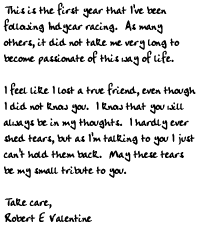 This is the first year that I've been
following Indycar racing. As many
others, it did not take me very long to
become passionate of this way of life.

I feel like I lost a true friend, even though
I did not know you. I know that you will
always be in my thoughts. I hardly ever
shed tears, but as I'm talking to you I just
can't hold them back. May these tears
be my small tribute to you.

Take care,
Robert E Valentine